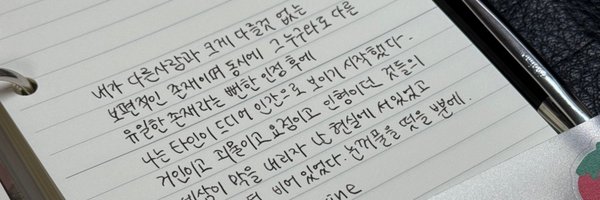 내가 다른사람과 크게 다를것 없는
보편적인 존재이며 동시에 그 누구와도 다른
유일한 존재라는 뻔한 인정 후에
나는 타인이 드디어 인간으로 보이기 시작했다.
거인이고 괴물이고 요정이고 인형이던 것들의
세상이 막을 내리자 난 현실에 서있었고
비어 있었다. 눈꺼풀을 떴을 뿐에.